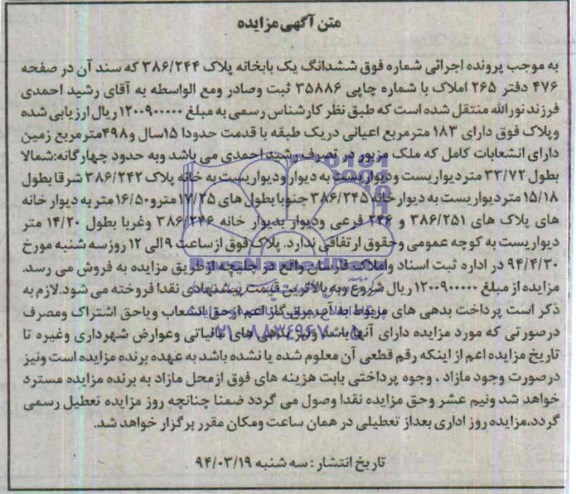 متن آگهی مزایده
به موجب پرونده اجرائی شماره فوق ششدانگ یک بابخانه پلاک ۳۸۶/۲۴۴ که سند آن در صفحه
۴۷۶ دفتر ۲۶۵ املاک با شماره چاپی ۳۵۸۸۶ ثبت وصادر ومع الواسطه به آقای رشید احمدی
فرزند نورالله منتقل شده است که طبق نظر کارشناس رسمی به مبلغ ۱۲۰۰۹۰۰۰۰۰ ریال ارزیابی شده
وپلاک فوق دارای ۱۸۳ مترمربع اعیانی دریک طبقه با قدمت حدودا ۱۵سال و۴۹۸مترمربع زمین
دارای انشعابات کامل که ملک مزبور در تصرف رشید احمدی می باشد وبه حدود چهارگانه:شمالا
بطول ۳۳/۷۲ متردیواریست ودیواریست به دیوار ودیواریست به خانه پلاک ۳۸۶/۲۴۲ شرقا بطول
۱۵/۱۸ متردیواریست به دیوارخانه ۳۸۶/۲۴۵ جنوبا بطول های ۱۷/۲۵ مترو۱۶/۵۰ متر به دیوار خانه
های پلاک های ۳۸۶/۲۵۱ و ۲۴۶ فرعی ودیوار بدیوار خانه ۳۸۶/۲۴۶ وغربا بطول ۱۴/۲۰ متر
دیواریست به کوچه عمومی وحقوق ارتفاقی ندارد. پلاک فوق ازساعت ۹ الی ۱۲ روزسه شنبه مورخ
۹۴/۴/۳۰ در اداره ثبت اسناد واملاک فارسان واقع در جلیعه ازطریق مزایده به فروش می رسد.
مزایده از مبلغ ۱۲۰۰۹۰۰۰۰۰ ریال شروع وبه بالاترین قیمت پیشنهادی نقدا فروخته می شود.لازم به
ذکر است پرداخت بدهی های مربوط به آب،برق،گاز اعم ازحق انشعاب ویاحق اشتراک ومصرف
درصورتی که مورد مزایده دارای آنها باشد ونیز بدهی های مالیاتی وعوارض شهرداری وغیره تا
تاریخ مزایده اعم از اینکه رقم قطعی آن معلوم شده یا نشده باشد به عهده برنده مزایده است ونیز
درصورت وجود مازاد ، وجوه پرداختی بابت هزینه های فوق ازمحل مازاد به برنده مزایده مسترد
خواهد شد ونیم عشر وحق مزایده نقدا وصول می گردد ضمنا چنانچه روز مزایده تعطیل رسمی
گردد،مزایده روز اداری بعداز تعطیلی در همان ساعت ومکان مقرر برگزار خواهد شد.
تاریخ انتشار : سه شنبه ۹۴/۰۳/۱۹